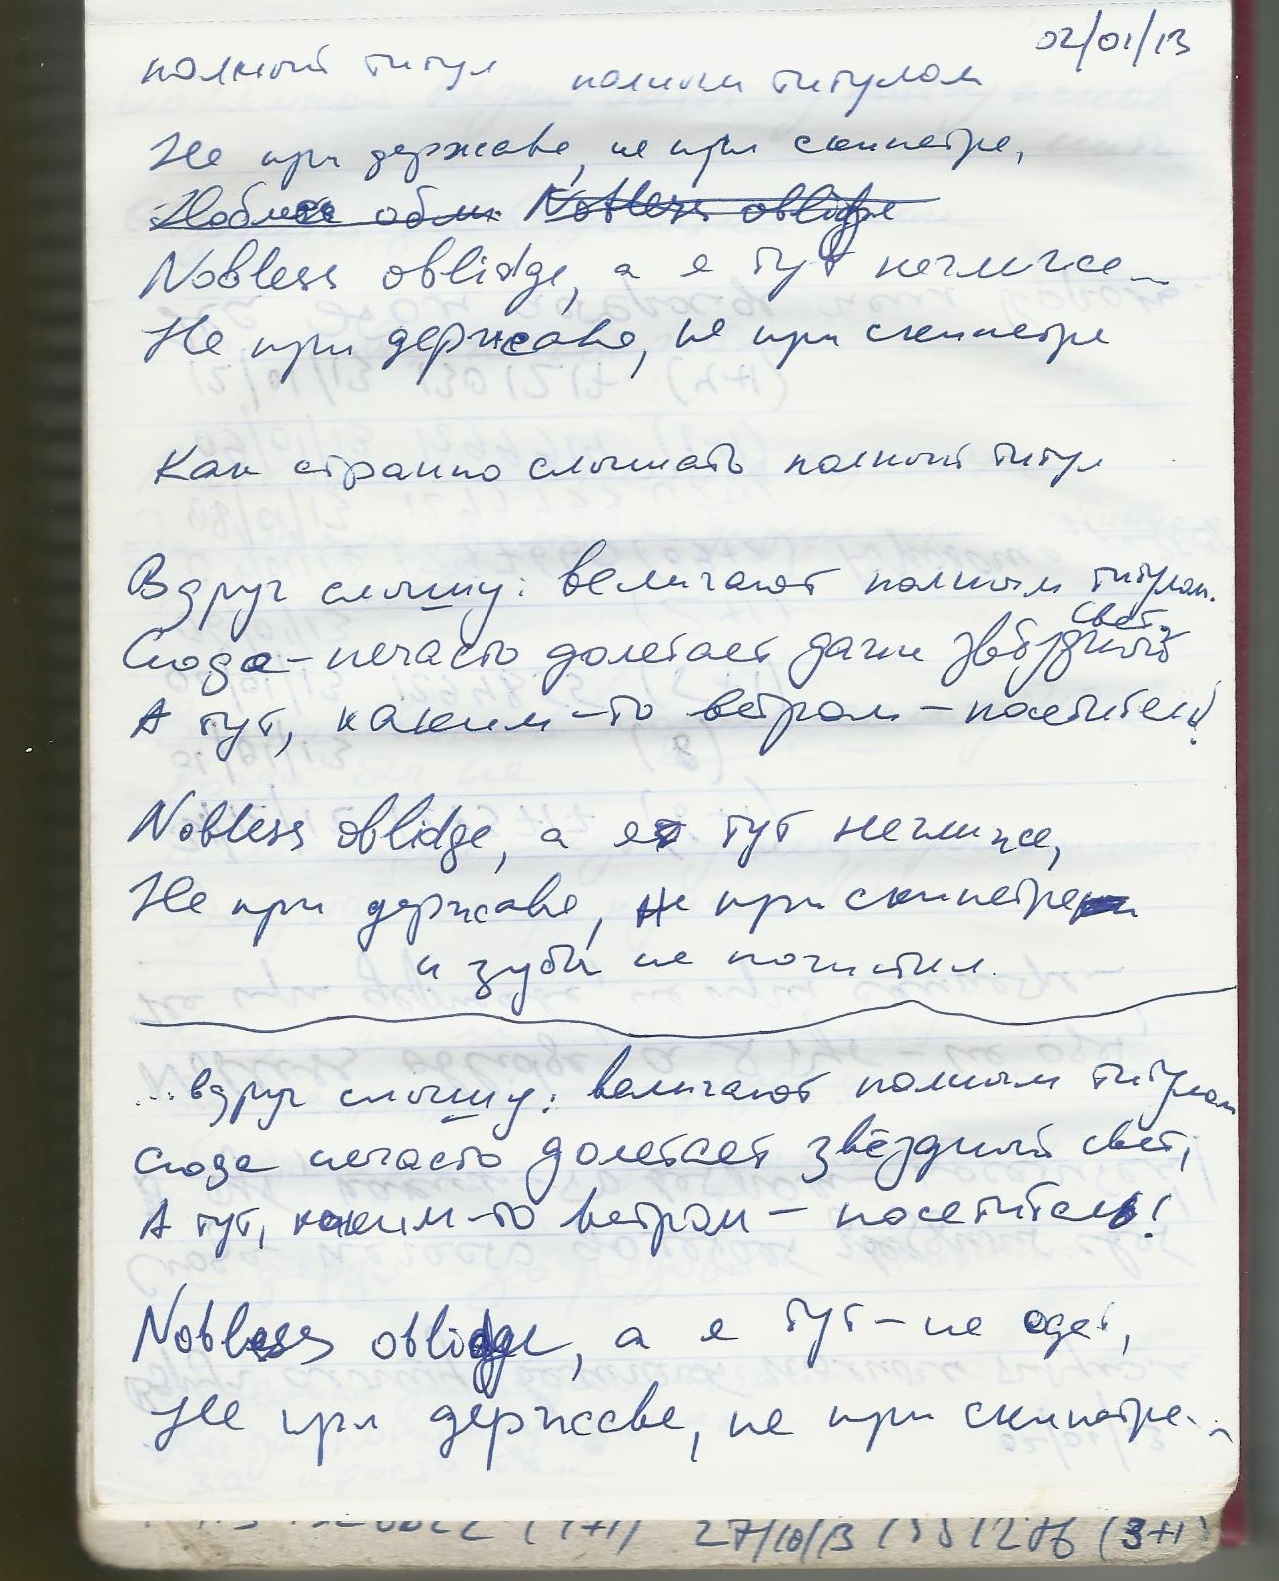 02/01/13
полный титул полным титулом
Не при державе, не при скипетре,
Nobless oblidge
Nobless oblidge, а я тут неглиже
Не при державе, не при скипетре
Как странно слышать полный титул
Вдруг слышу: величают полным титулом.
свет.
Сюда-нечасто долетает даже звёздный
А тут, каким-то ветром - посетители!
Nobless oblidge, а я тут неглиже,
Не при державе, не при скипетре
и зубы не почистил.
...вдруг слышу: величают полным титулом
Сюда нечасто долетает звёздный свет,
А тут, каким-то ветром - посетитель!
Nobless oblidge, а я тут - не одет,
Не при державе, не при скипетре...
(1+1) 27/10/13 (3+1)